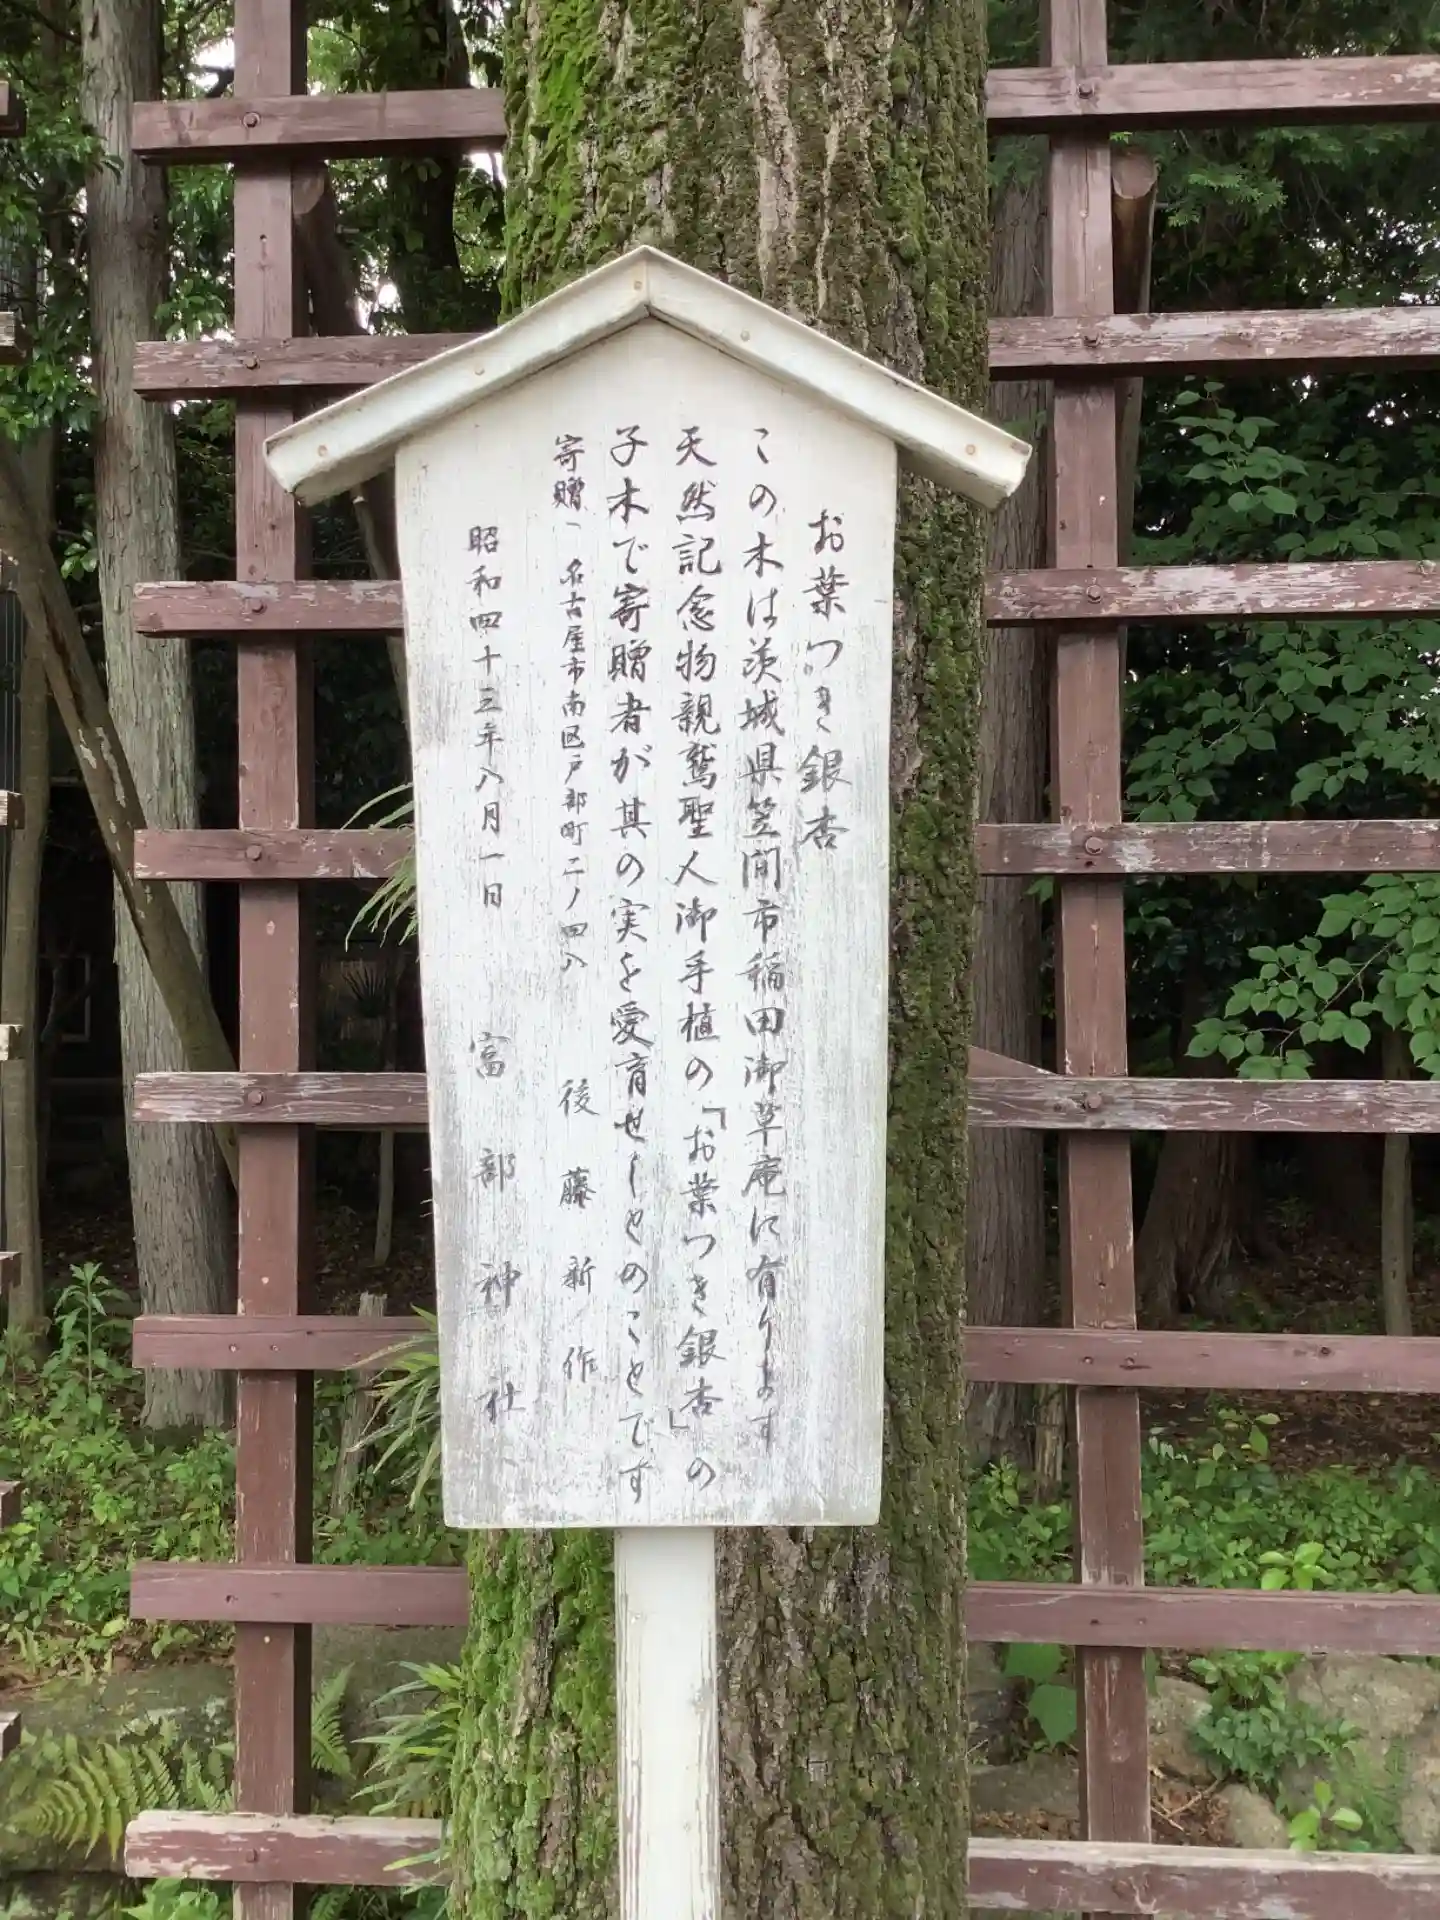 お葉つき銀杏
この木は茨城県笠間市稲田御草庵に有ります
天然記念物親鸞聖人御手植の「お葉つき銀杏」の
子木で寄贈者が其の実を愛育せしとのことです
寄贈 名古屋市南区戸部町二ノ四八 後藤新作
昭和四十三年八月一日 富部神社